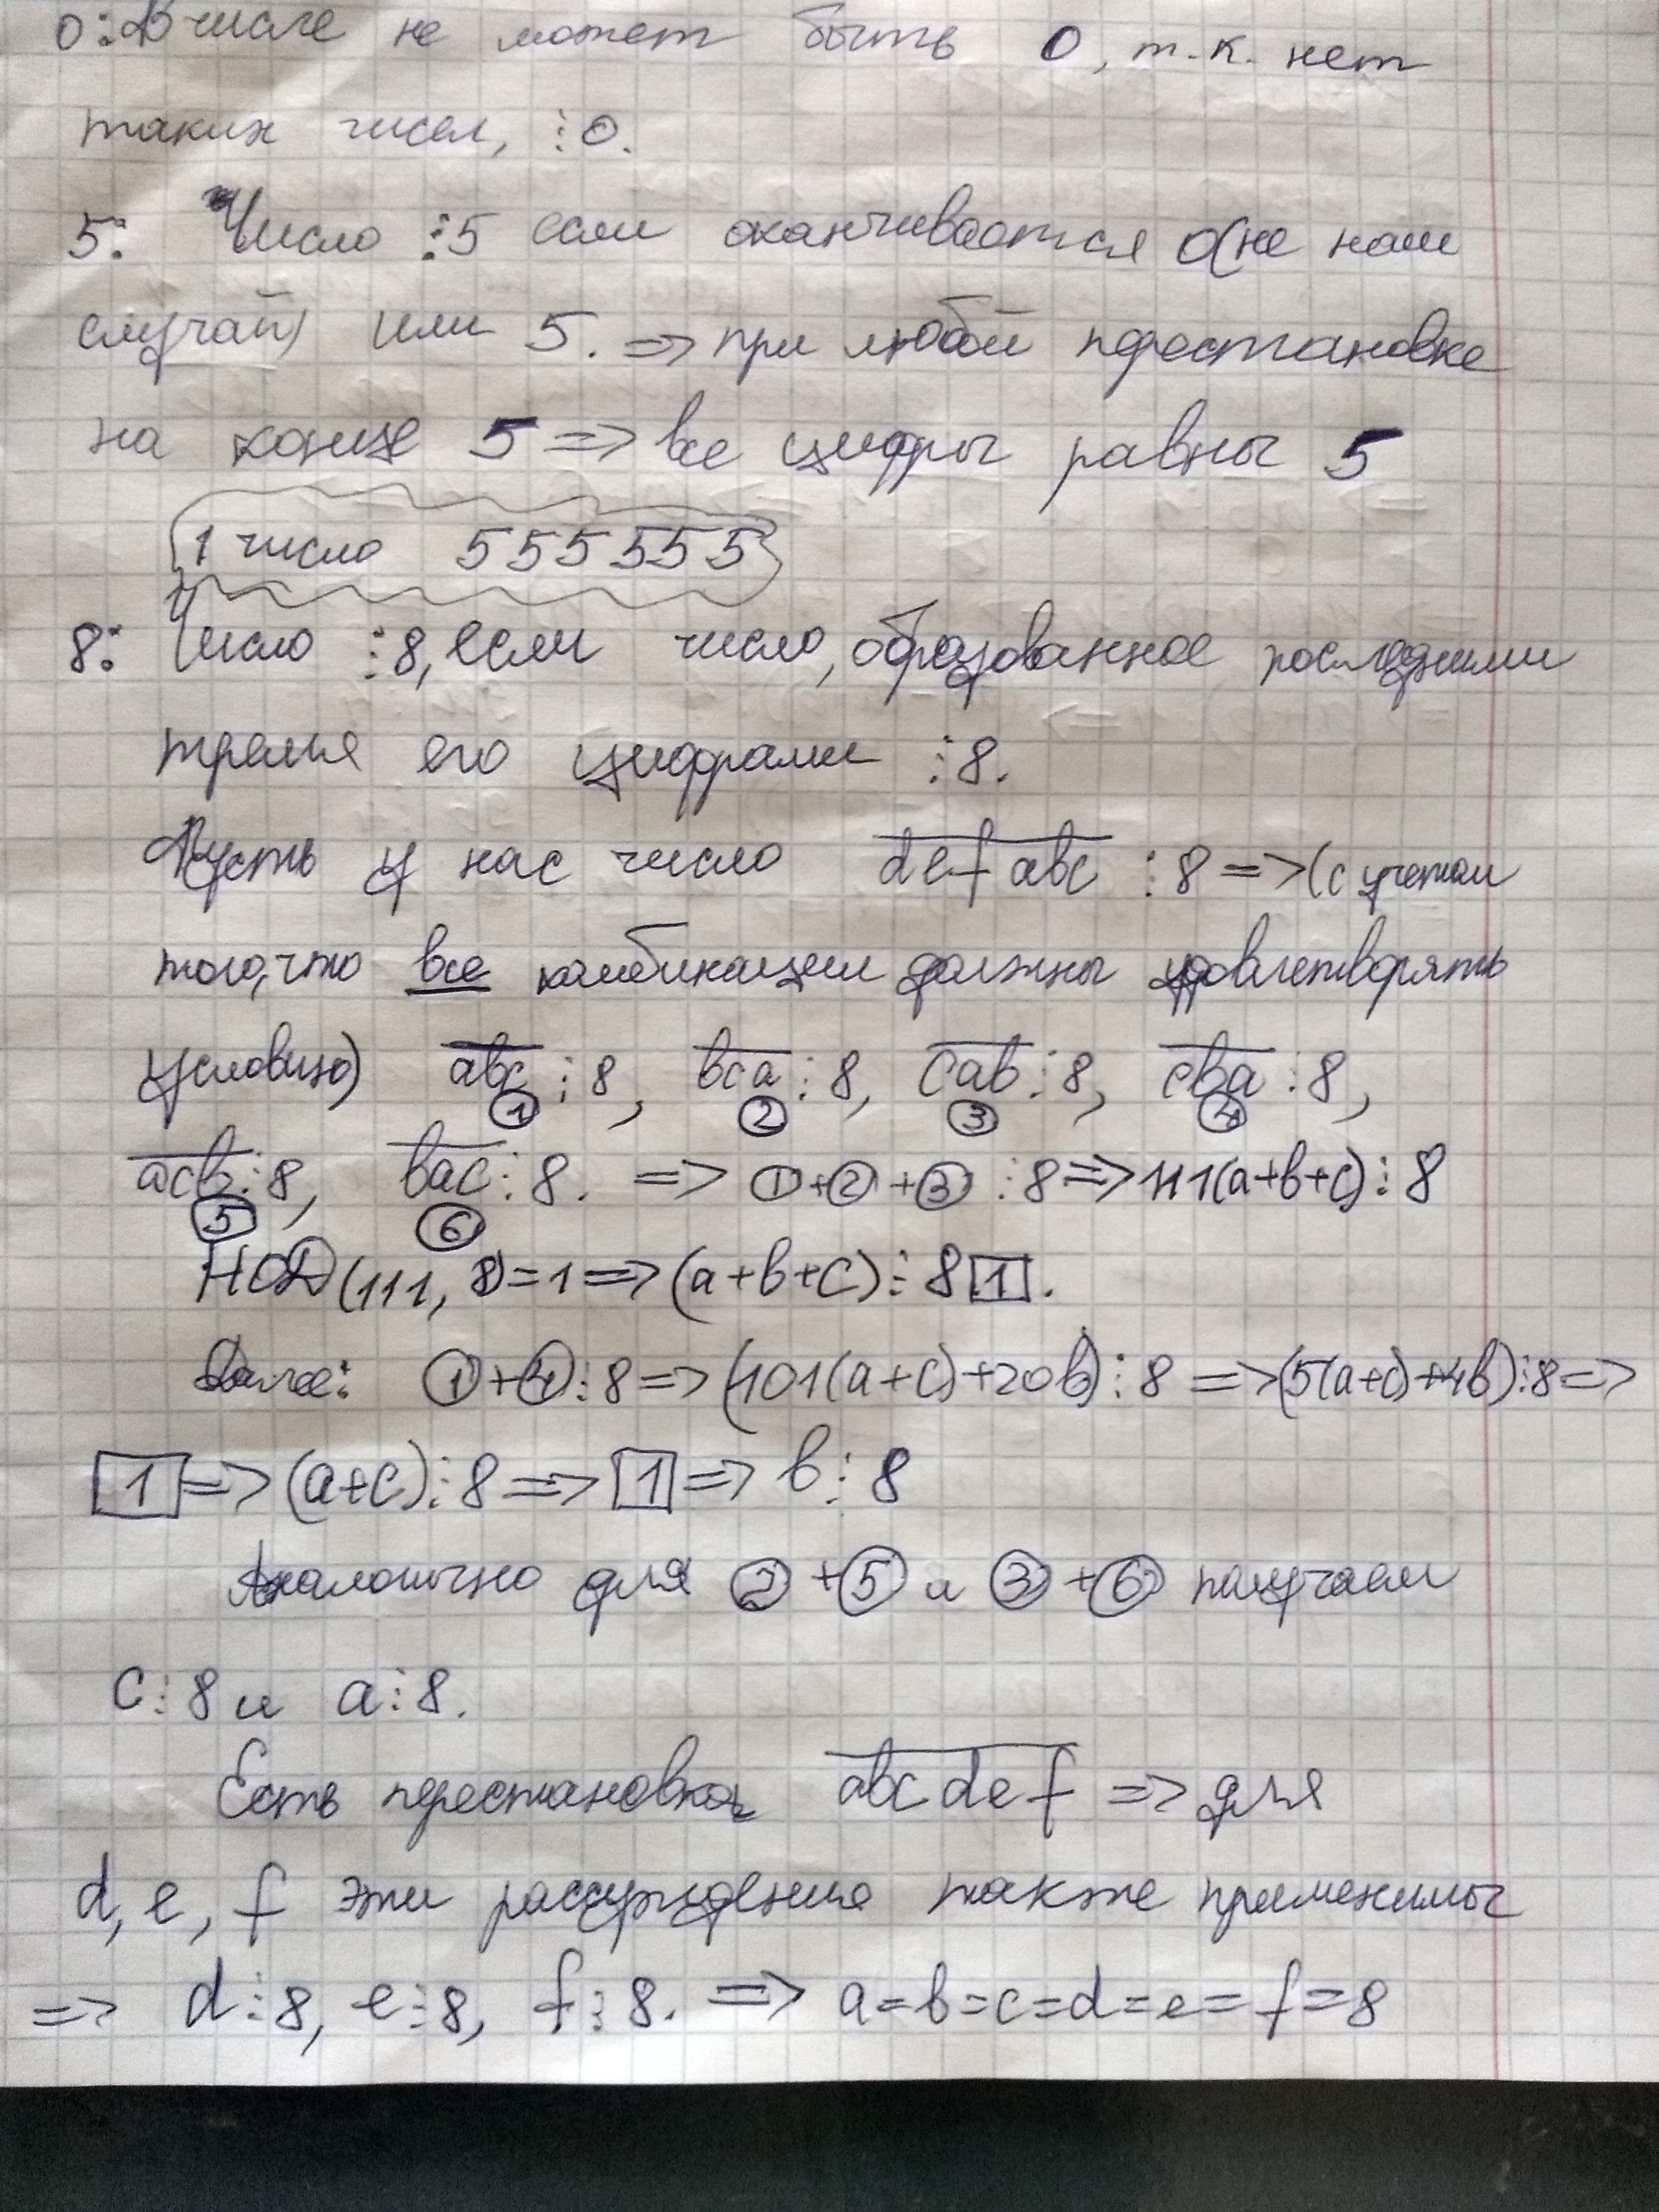 0: В числе не может быть 0, т.к. нет
таких чисел, ⋮0.
5: Число ⋮5 если оканчивается 0(не наш
случай) или 5. => при любой перестановке
на конце 5 => все цифры равны 5
1 число 555555
8: Число ⋮8, если число, образованное последними
тремя его цифрами ⋮8.
Пусть у нас число defabc ⋮8 => (с учетом
того, что все комбинации должны удовлетворять
условию) abc⋮8, bca⋮8, cab⋮8, cba⋮8,
① ② ③ ④
acb⋮8, bac⋮8. => ①+②+③ ⋮8 => 111(a+b+c)⋮8
⑤ ⑥
НОД(111, 8)=1 => (a+b+c)⋮8 1.
Далее: ①+④⋮8 => (101(a+c)+20b)⋮8 => (5(a+c)+4b)⋮8 =>
1 => (a+c)⋮8 => 1 => b⋮8
Аналогично для ②+⑤ и ③+⑥ получаем
c⋮8 и a⋮8.
Есть перестановка abcdef => для
d, e, f эти рассуждения также применимы
=> d⋮8, e⋮8, f⋮8. => a=b=c=d=e=f=8